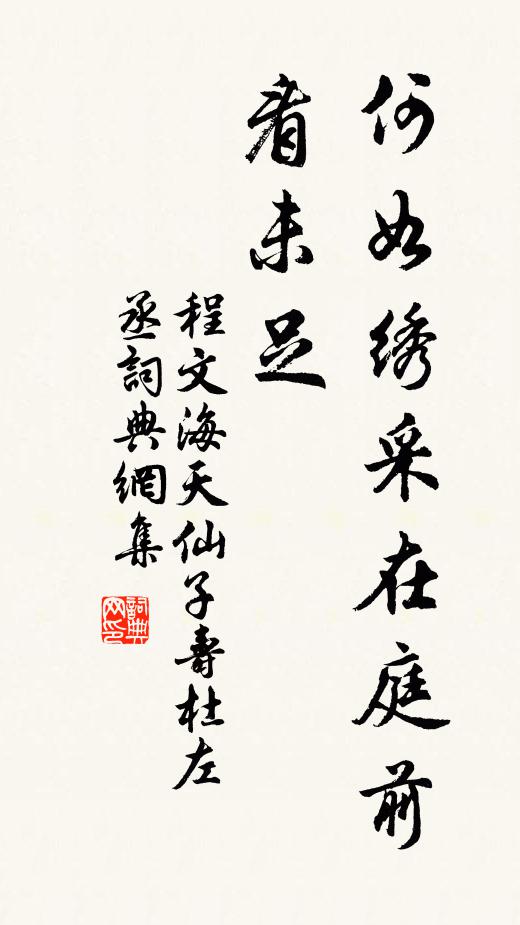 何如绣采在庭前
看未足
程文海天仙子寿杜左
丞詞典網集
詞典
网印